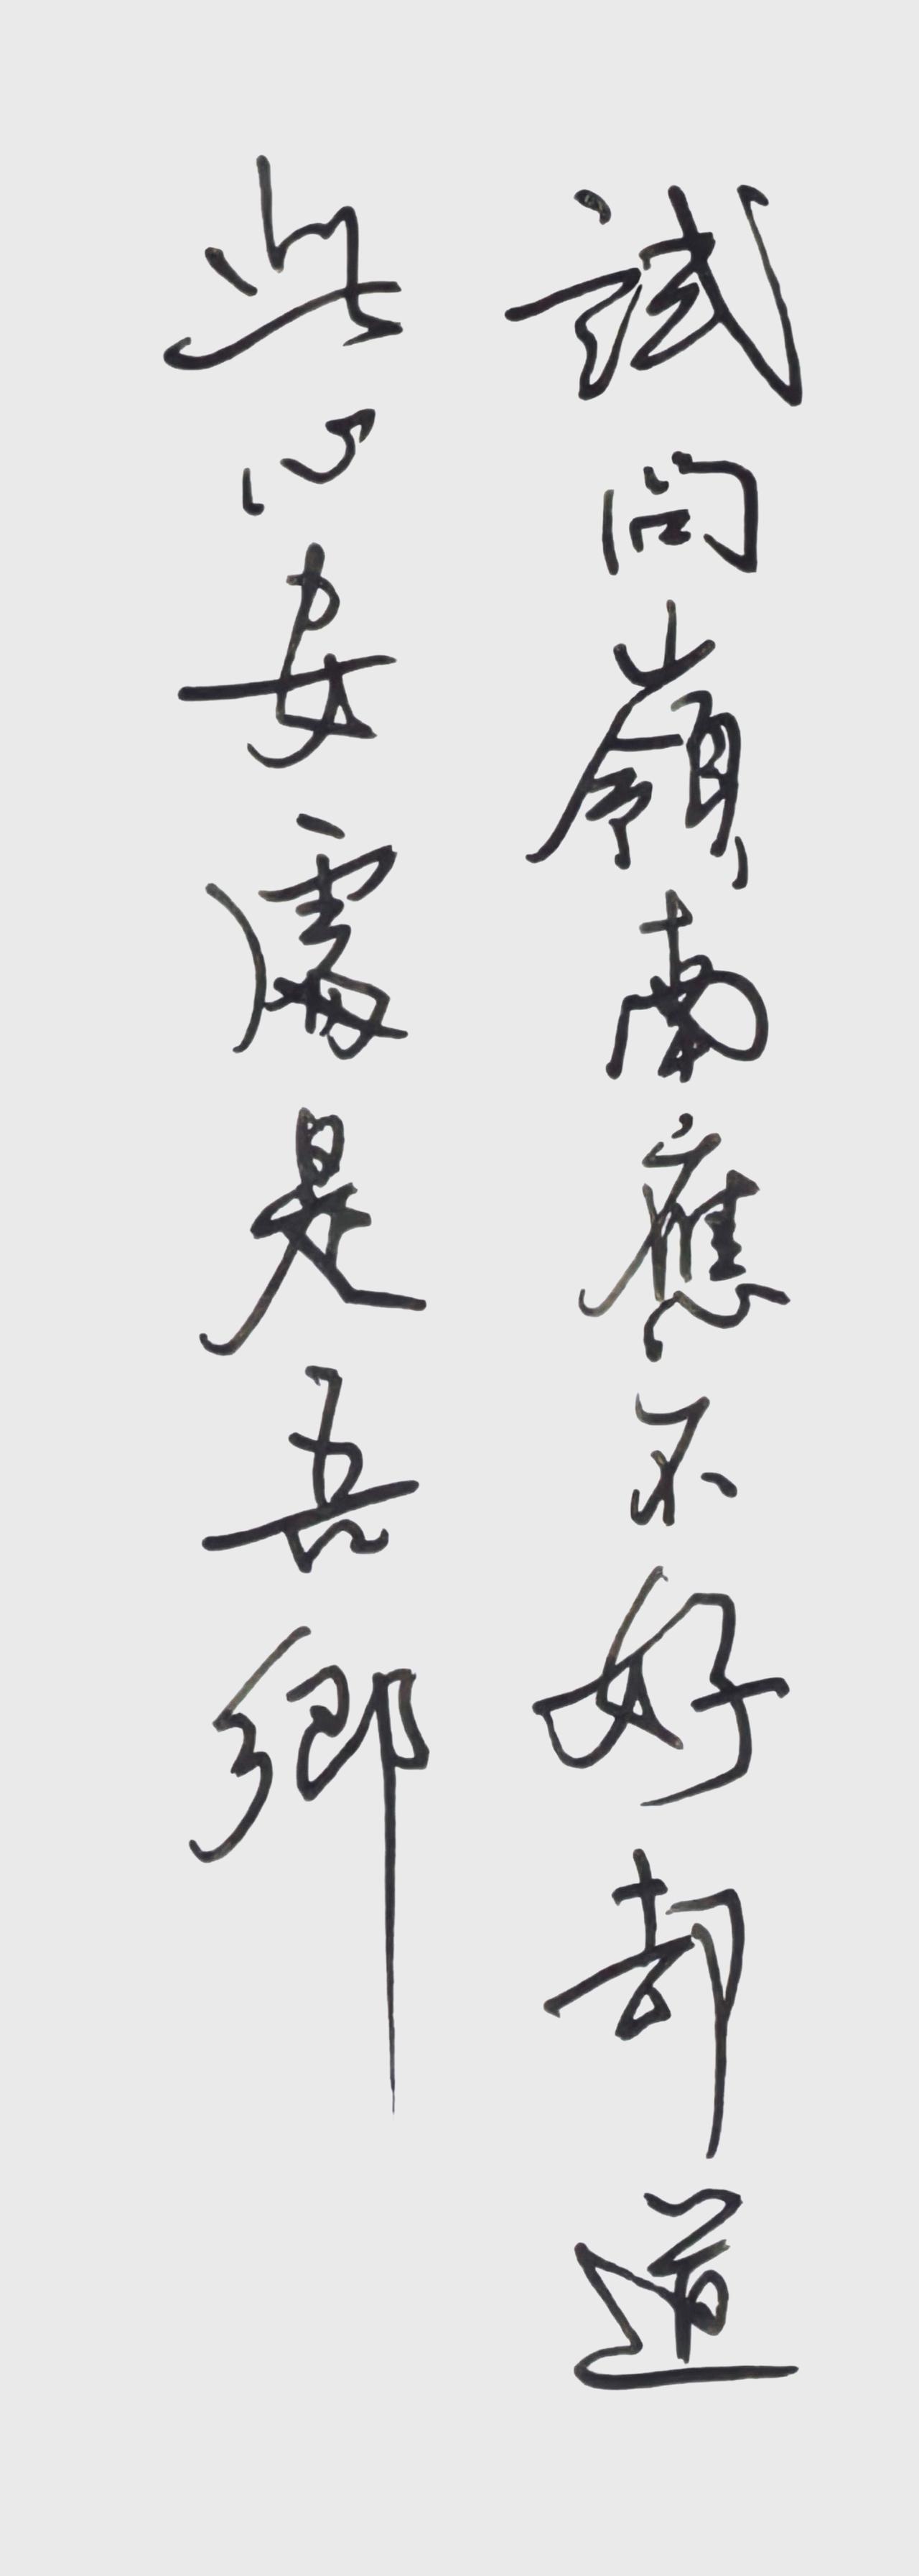 試問嶺南應不好却道
此心安處是吾鄉